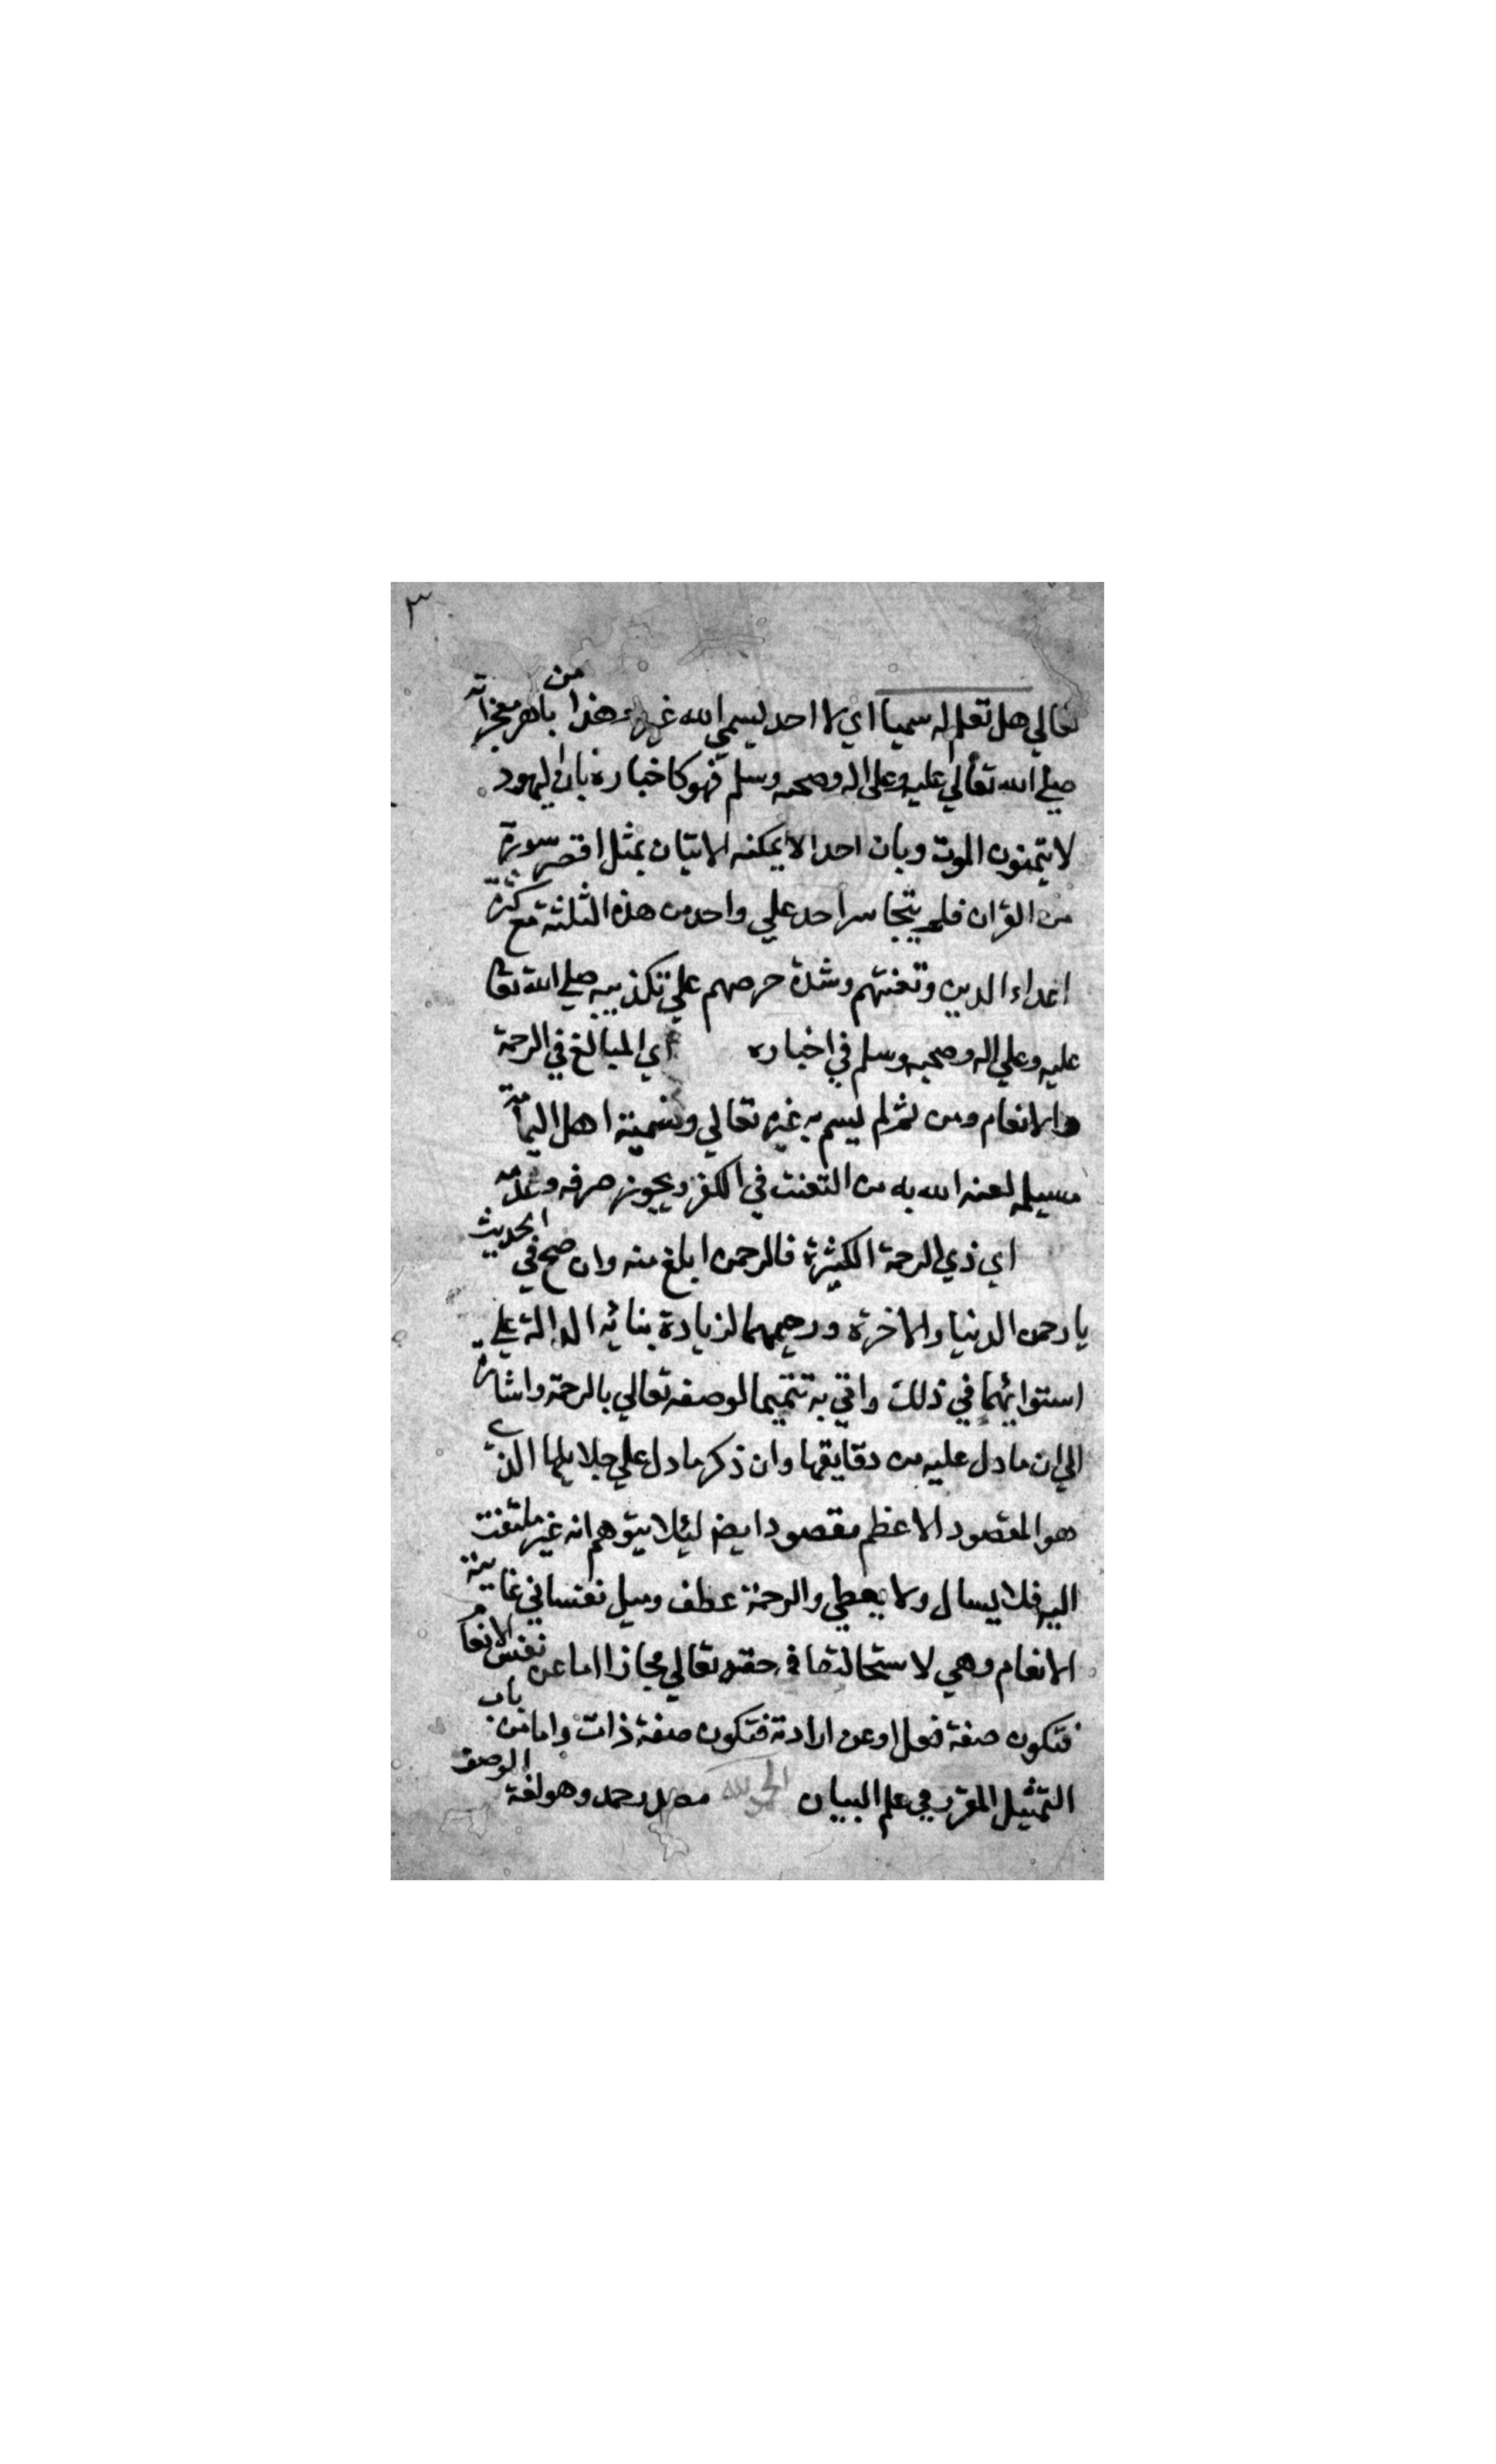 ٣
تعالي هل تعلم له سميا اي لا احد ليسمي الله غيره وهذا من باهر معجزاته
صلي الله تعالي عليه وعلى اله وصحبه وسلم فهو كاخباره بان اليهود
لا يتمنون الموت وبان احدا لا يمكنه الاتيان بمثل اقصر سورة
من القران فلم يتجاسر احد علي واحد من هذه الثلثة مع كثرة
اعداء الدين وتعنتهم وشدة حرصهم علي تكذيبه صلي الله تعا
عليه وعلي اله وصحبه وسلم في اخباره اي المبالغ في الرحمة
والانعام ومن ثم لم يسم به غيره تعالي وتسمية اهل اليمامة
مسيلمه لعنه الله به من التعنت في الكفر ويجوز صرفه وعدمه
اي ذي الرحمة الكثيرة فالرحمن ابلغ منه وان صح في الحديث
يا رحمن الدنيا والاخرة ورحيمهما لزيادة بنائه الدالة علي
استوائهما في ذلك واتي به تتميما لوصفه تعالي بالرحمة واشارة
الي ان ما دل عليه من دقايقها وان ذكر ما دل علي جلايلها الذي
هو المقصود الاعظم مقصود ايض ليلا يتوهم انه غير ملتفت
اليه فلا يسال ولا يعطي والرحمة عطف وميل نفساني غايته
الانعام وهي لاستحالتها في حقه تعالي مجاز اما عن نفس الانعام
فتكون صفة فعل او عن ارادته فتكون صفة ذات واما من باب
التمثيل المقرر في علم البيان الحمد لله مصدر حمد وهو لغة الوصف